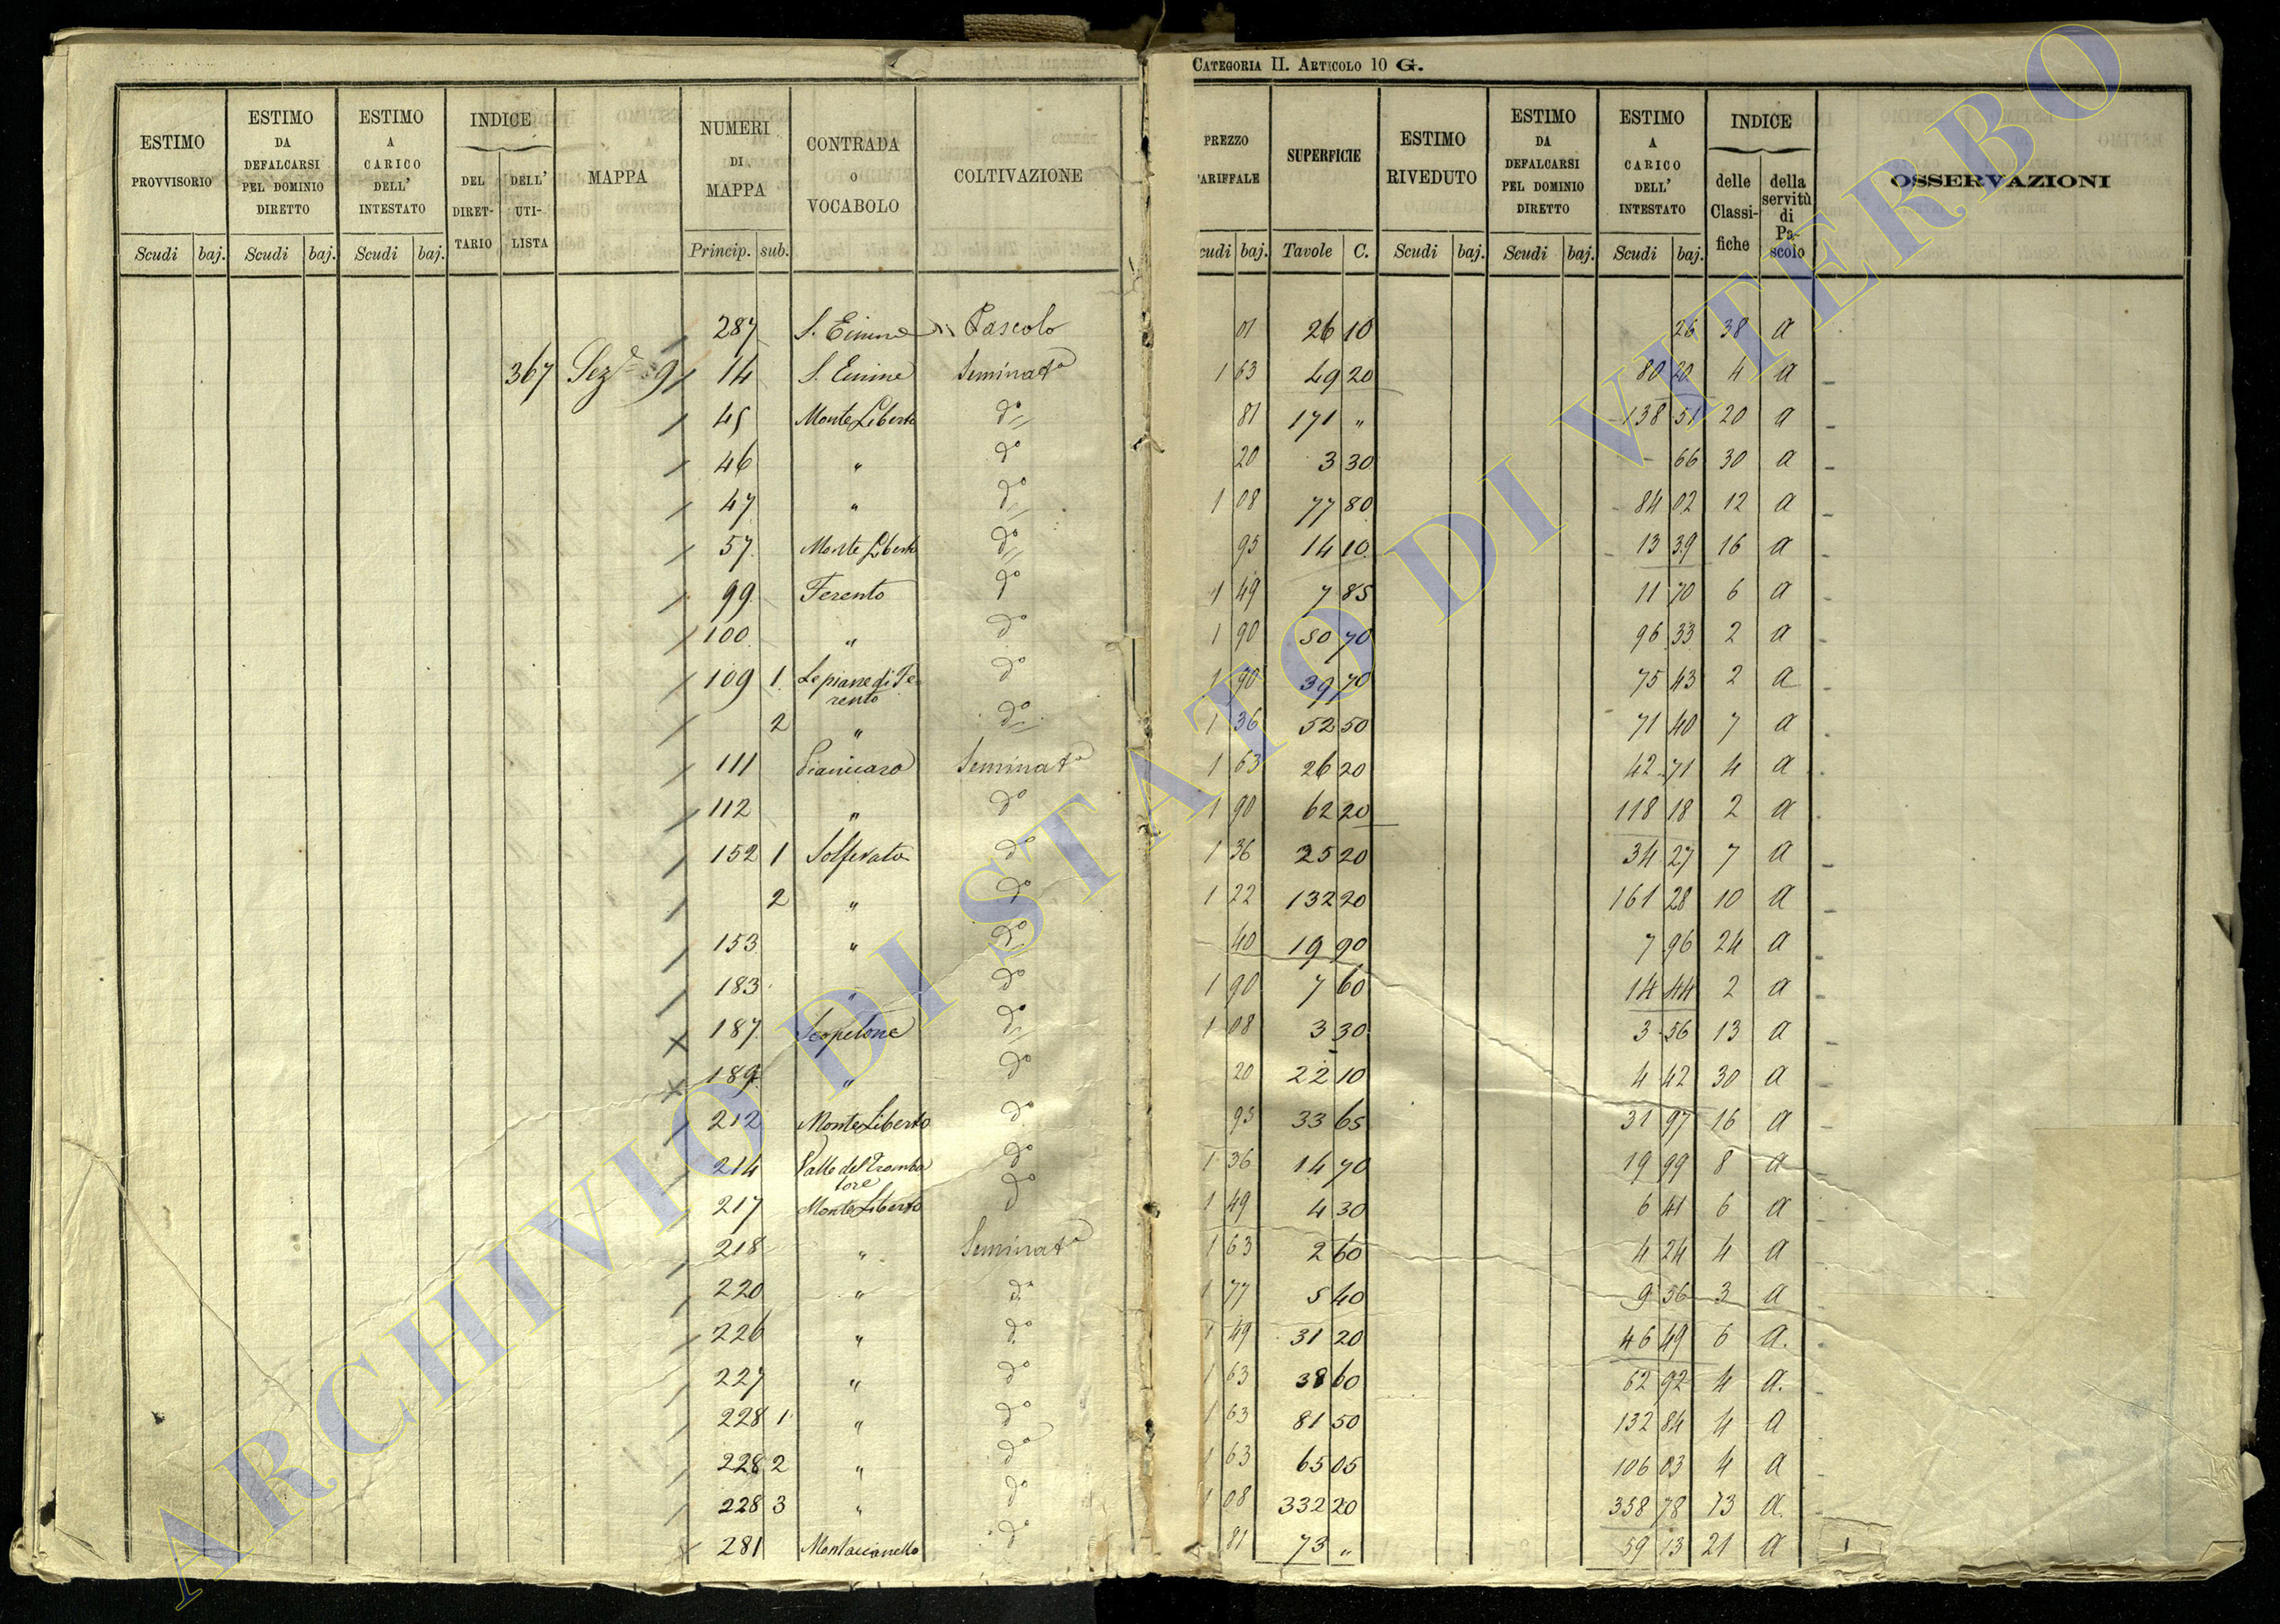 CATEGORIA II. ARTICOLO 10 G.
ESTIMO PROVVISORIO Scudi baj.
ESTIMO DA DEFALCARSI PEL DOMINIO DIRETTO Scudi baj.
ESTIMO A CARICO DELL' INTESTATO Scudi baj.
INDICE DEL DIRET-TARIO DELL' UTI-LISTA
MAPPA
NUMERI DI MAPPA Princip. sub.
CONTRADA o VOCABOLO
COLTIVAZIONE
PREZZO TARIFFALE cudi baj.
SUPERFICIE Tavole C.
ESTIMO RIVEDUTO Scudi baj.
ESTIMO DA DEFALCARSI PEL DOMINIO DIRETTO Scudi baj.
ESTIMO A CARICO DELL' INTESTATO Scudi baj.
INDICE delle Classi-fiche della servitù di Pa-scolo
OSSERVAZIONI
287 Pascolo 01 26 10 26 38 a
367 Sez.e 9 14 Seminato 1 63 49 20 80 20 4 a
45 Monte Liberto do 81 171 " 138 51 20 a
46 " do 20 3 30 66 30 a
47 " do 1 08 77 80 84 02 12 a
57 Monte Liberto do 95 14 10 13 39 16 a
99 Ferento do 1 49 7 85 11 70 6 a
100 " do 1 90 50 70 96 33 2 a
109 1 Le piane di Fe-
rento do 1 90 39 70 75 43 2 a
2 " do 1 36 52 50 71 40 7 a
111 Seminato 1 63 26 20 42 71 4 a
112 " do 1 90 62 20 118 18 2 a
152 1 Solferata do 1 36 25 20 34 27 7 a
2 " do 1 22 132 20 161 28 10 a
153 " do 40 19 90 7 96 24 a
183 " do 1 90 7 60 14 44 2 a
187 do 1 08 3 30 3 56 13 a
189 " do 20 22 10 4 42 30 a
212 Monte Liberto do 95 33 65 31 97 16 a
214 Valle del Tromba
tore do 1 36 14 70 19 99 8 a
217 Monte Liberto do 1 49 4 30 6 41 6 a
218 " Seminato 1 63 2 60 4 24 4 a
220 " do 1 77 5 40 9 56 3 a
226 " do 1 49 31 20 46 49 6 a.
227 " do 1 63 38 60 62 92 4 a.
228 1 " do 1 63 81 50 132 84 4 a
228 2 " do 1 63 65 05 106 03 4 a
228 3 " do 1 08 332 20 358 78 13 a.
281 do 81 73 " 59 13 21 a
1
ARCHIVIO DI STATO DI VITERBO